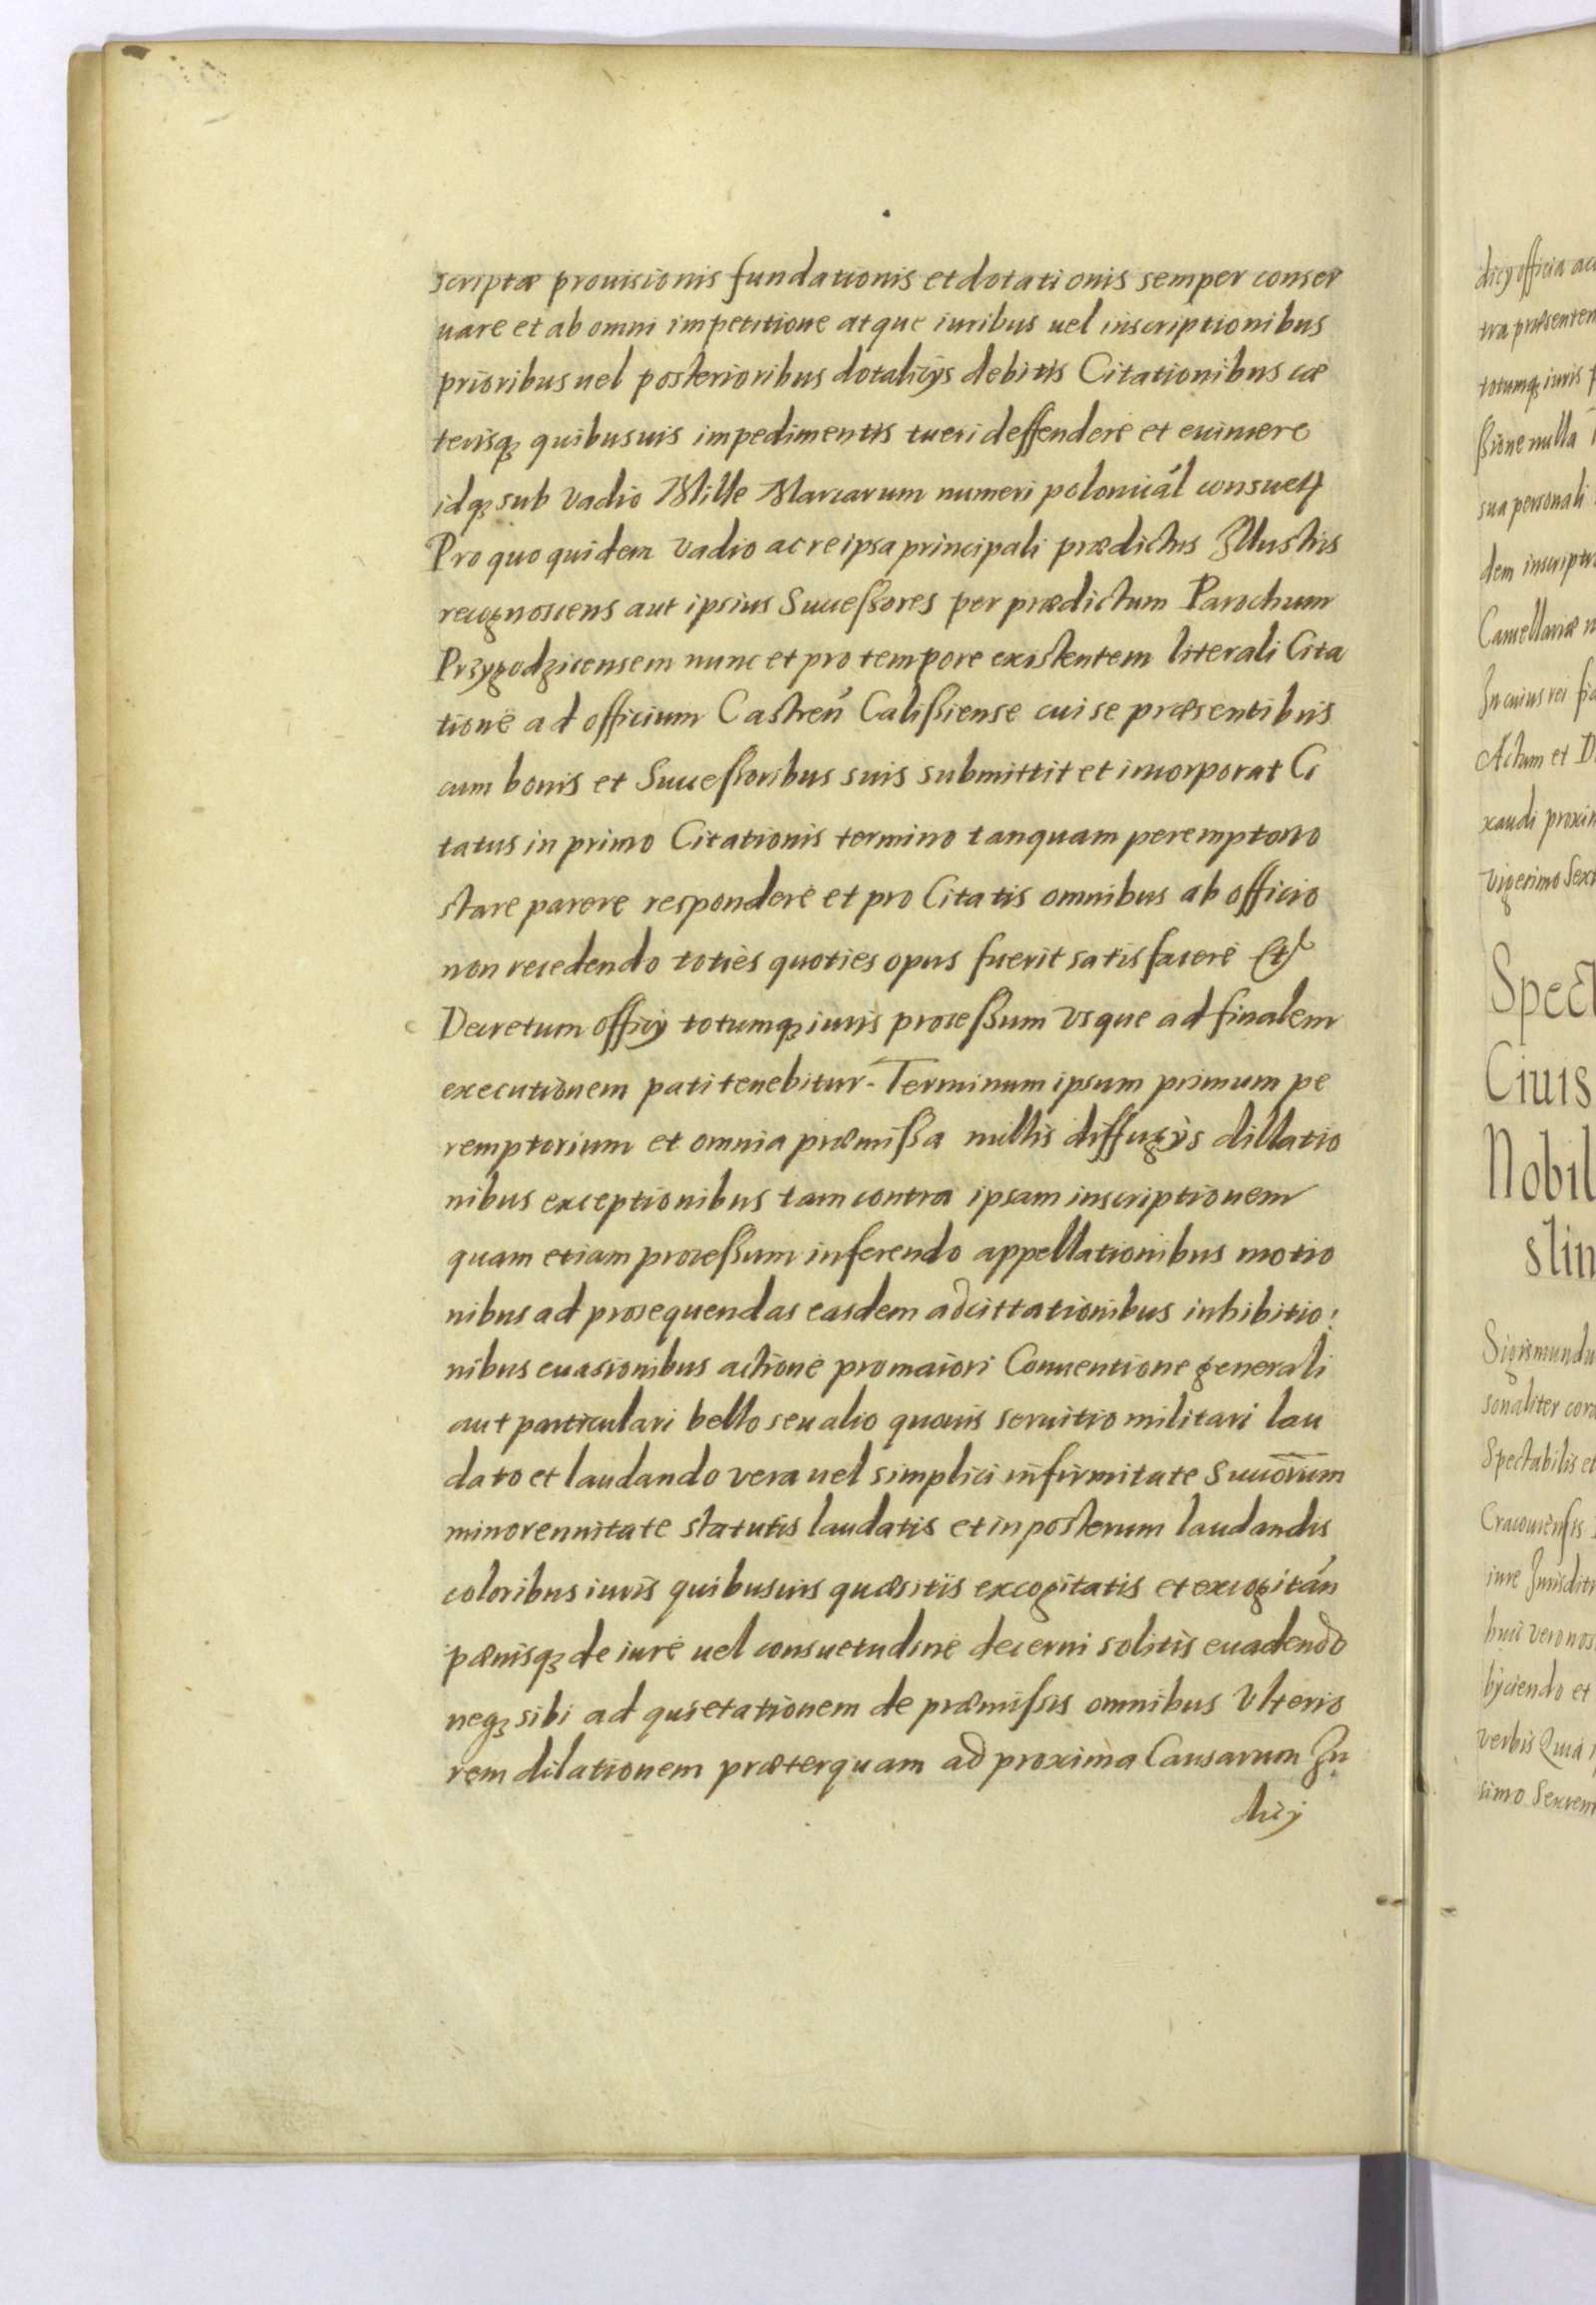 scriptæ prouisionis fundationis et dotationis semper conser
uare et ab omni impetitione atque iuribus uel inscriptionibus
prioribus uel posterioribus dotalicijs debitis Citationibus cæ
terisqꝫ quibusuis impedimentis tueri deffendere et euincere
idqꝫ sub vadio Mille Marcarum numeri polonicál consuetꝝ
Pro quo quidem vadio ac re ipsa principali prædictus Illustris
recognoscens aut ipsius Succeßores per prædictum Parochum
Przygodzicensem nunc et pro tempore existentem literali Cita
tione ad officium Castreń Calißiense cui se præsentibus
cum bonis et Succeßoribus suis submittit et incorporat Ci
tatus in primo Citationis termino tanquam peremptorio
stare parere respondere et pro Citatis omnibus ab officio
non recedendo toties quoties opus fuerit satisfacere Et
Decretum officij totumqꝫ iuris proceßum vsque ad finalem
executionem pati tenebitur. Terminum ipsum primum pe
remptorium et omnia præmißa nullis diffugijs dillatio
nibus exceptionibus tam contra ipsam inscriptionem
quam etiam proceßum inferendo appellationibus motio
nibus ad prosequendas easdem adcittationibus inhibitio:
nibus euasionibus actione pro maiori Conuentione generali
aut particulari bello seu alio quouis seruitio militari lau
dato et laudando vera uel simplici infirmitate Succorum
minorennitate statutis laudatis et in posterum laudandis
coloribus iuris quibusuis quæsitis excogitatis et excogitán
pænisqꝫ de iure uel consuetudine decerni solitis euadendo
neqꝫ sibi ad quietationem de præmissis omnibus Vlterio
rem dilationem præterquam ad proxima Causarum Iu
dicij
dicij officia ac
tra præsentem
totumqꝫ iuris
ßione nulla
sua personali
dem inscripti
Cancellariæ
In cuius rei fi
Actum et D
xandi proxim
vigesimo Sex
Spect
Ciuis
Nobil
slin
Sigismundu
sonaliter cora
Spectabilis et
Cracouiensis
iure Iurisditi
huic vero nos
byciendo et
verbis Quia
simo Sexcent